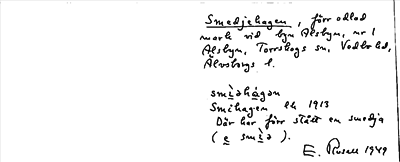 Smedjehagen, förr odlad
mark vid byn Alsbyn, nr 1
Alsbyn, Torrskogs sn, Vedbo hd,
Älvsborgs l.
smìəhàgən
Smihagen lk 1913
Där har förr stått en smedja
(e smìə).
E. Rosell 1949